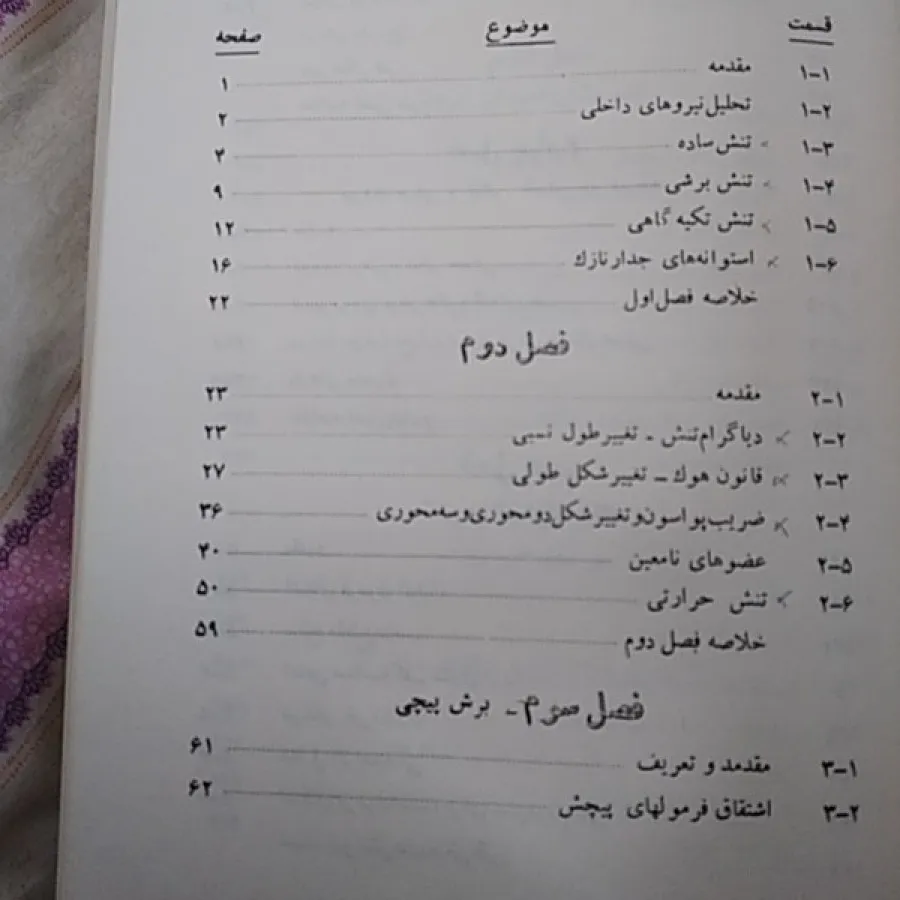 قسمت موضوع صفحه
۱-۱ مقدمه ۱
۱-۲ تحلیل نیروهای داخلی ۲
۱-۳ تنش ساده ۴
۱-۴ تنش برشی ۹
۱-۵ تنش تکیه گاهی ۱۲
۱-۶ استوانه‌های جدار نازك ۱۶
خلاصه فصل اول ۲۲
فصل دوم
۲-۱ مقدمه ۲۳
۲-۲ دیاگرام تنش ـ تغییر طول نسبی ۲۳
۲-۳ قانون هوك ـ تغییر شکل طولی ۲۷
۲-۴ ضریب پواسون و تغییر شکل دو محوری و سه محوری ۳۶
۲-۵ عضوهای نامعین ۴۰
۲-۶ تنش حرارتی ۵۰
خلاصه فصل دوم ۵۹
فصل سوم ـ برش پیچی
۳-۱ مقدمه و تعریف ۶۱
۳-۲ اشتقاق فرمولهای پیچش ۶۲